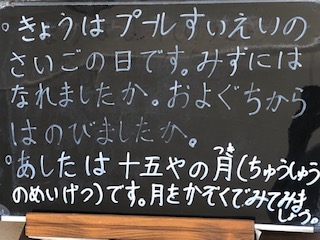 。きょうはプールすいえいの
さいごの日です。みずには
なれましたか。およぐちから
はのびましたか。
。あしたは十五やの月(ちゅうしゅう
つき
のめいげつ)です。月をかぞくでみてみま
しょう。